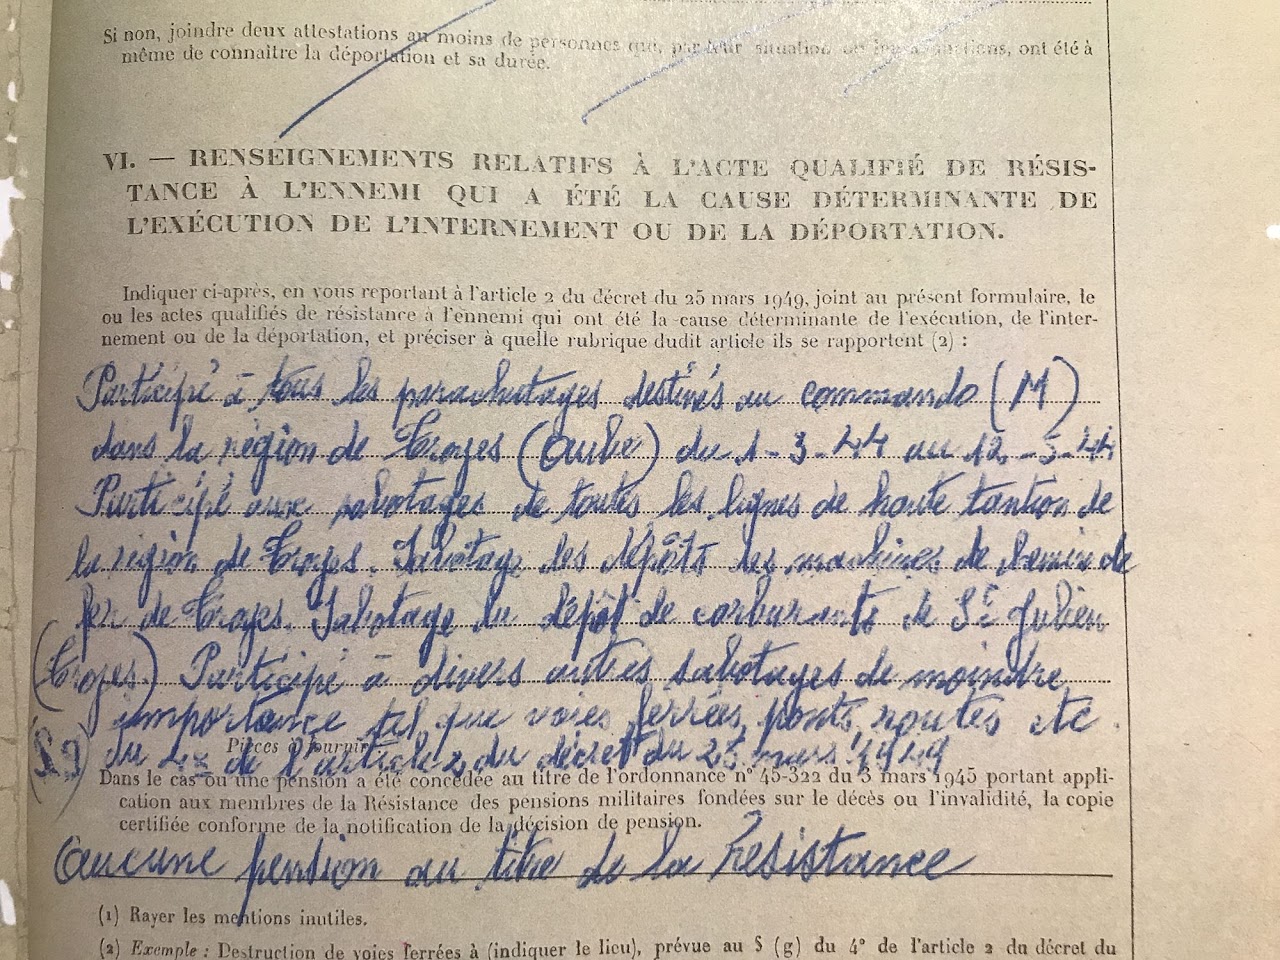 Si non, joindre deux attestations au moins de personnes que, par leur situation ou leurs fonctions, ont été à
même de connaître la déportation et sa durée.
VI. — RENSEIGNEMENTS RELATIFS À L'ACTE QUALIFIÉ DE RÉSIS-
TANCE À L'ENNEMI QUI A ÉTÉ LA CAUSE DÉTERMINANTE DE
L'EXÉCUTION DE L'INTERNEMENT OU DE LA DÉPORTATION.
Indiquer ci-après, en vous reportant à l'article 2 du décret du 25 mars 1949, joint au présent formulaire, le
ou les actes qualifiés de résistance à l'ennemi qui ont été la cause déterminante de l'exécution, de l'inter-
nement ou de la déportation, et préciser à quelle rubrique dudit article ils se rapportent (2) :
Participé à tous les parachutages destinés au commando (M)
dans la région de Troyes (Aube) du 1-3-44 au 12-5-44
Participé aux sabotages de toutes les lignes de haute tantion de
la région de Troyes. Sabotage les dépôts des machines de chemin de
fer de Troyes. Sabotage du dépôt de carburants de St Julien
(Troyes.) Participé à divers autres sabotages de moindre
importance tel que voies ferrées, ponts, routes etc.
du 2° de l'article 2 du décret du 25 mars 1949
Pièces à fournir
Dans le cas où une pension a été concédée au titre de l'ordonnance n° 45-322 du 3 mars 1945 portant appli-
cation aux membres de la Résistance des pensions militaires fondées sur le décès ou l'invalidité, la copie
certifiée conforme de la notification de la décision de pension.
Aucune pension au titre de la Résistance
(1) Rayer les mentions inutiles.
(2) Exemple : Destruction de voies ferrées à (indiquer le lieu), prévue au § (g) du 4° de l'article 2 du décret du